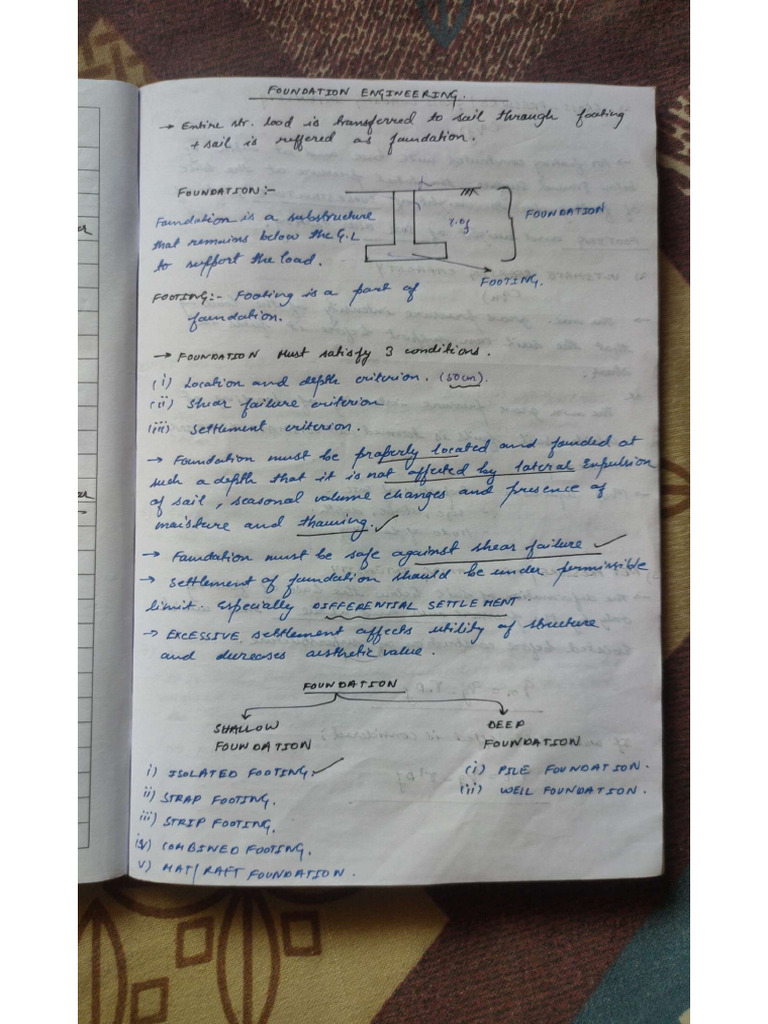 FOUNDATION ENGINEERING.
→ Entire str. load is transferred to soil through footing
+ soil is reffered as foundation.
FOUNDATION :-
Foundation is a substructure
that remains below the G.L
to support the load.
γ.Df
FOUNDATION
FOOTING.
FOOTING :- Footing is a part of
foundation.
→ FOUNDATION Must satisfy 3 conditions.
(i) Location and depth criterion. (50cm).
(ii) Shear failure criterion
(iii) Settlement criterion.
→ Foundation must be properly located and founded at
such a depth that it is not affected by lateral Expulsion
of soil, seasonal volume changes and presence of
moisture and thawing. ✓
→ Foundation must be safe against shear failure ✓
→ Settlement of foundation should be under permissible
limit. Especially DIFFERENTIAL SETTLEMENT
→ EXCESSIVE settlement affects utility of structure
and decreases aesthetic value.
FOUNDATION
SHALLOW
FOUNDATION
i) ISOLATED FOOTING. ✓
ii) STRAP FOOTING.
iii) STRIP FOOTING.
iv) COMBINED FOOTING.
v) MAT/ RAFT FOUNDATION.
DEEP
FOUNDATION
(i) PILE FOUNDATION.
(ii) WELL FOUNDATION.